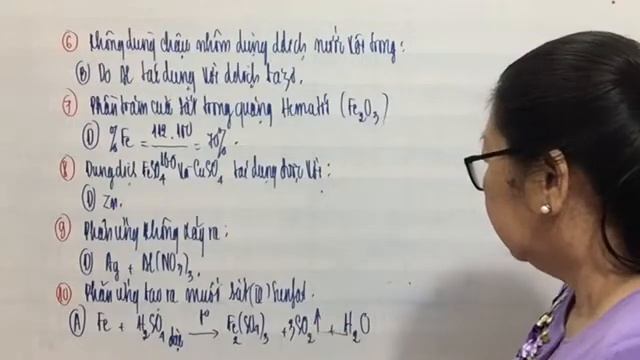 ⑥ Không dùng chậu nhôm đựng ddịch nước vôi trong:
Ⓑ Do Al tác dụng với ddịch bazơ.
⑦ Phần trăm của sắt trong quặng Hematit (Fe₂O₃)
Ⓓ %Fe = 112.100 / 160 = 70%.
⑧ Dung dịch FeSO₄ và CuSO₄ tác dụng được với:
Ⓓ Zn.
⑨ Phản ứng không xảy ra:
Ⓓ Ag + Al(NO₃)₃.
⑩ Phản ứng tạo ra muối sắt (III) Sunfat.
Ⓐ Fe + H₂SO₄ đặc t° → Fe₂(SO₄)₃ + 3SO₂↑ + H₂O